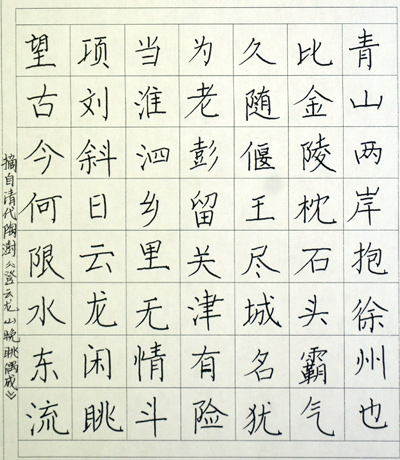 青山两岸抱徐州也
比金陵枕石头霸气
久随偃王尽城名犹
为老彭留关津有险
当淮泗乡里无情斗
项刘斜日云龙闲眺
望古今何限水东流
摘自清代陶澍《登云龙山晚眺偶成》